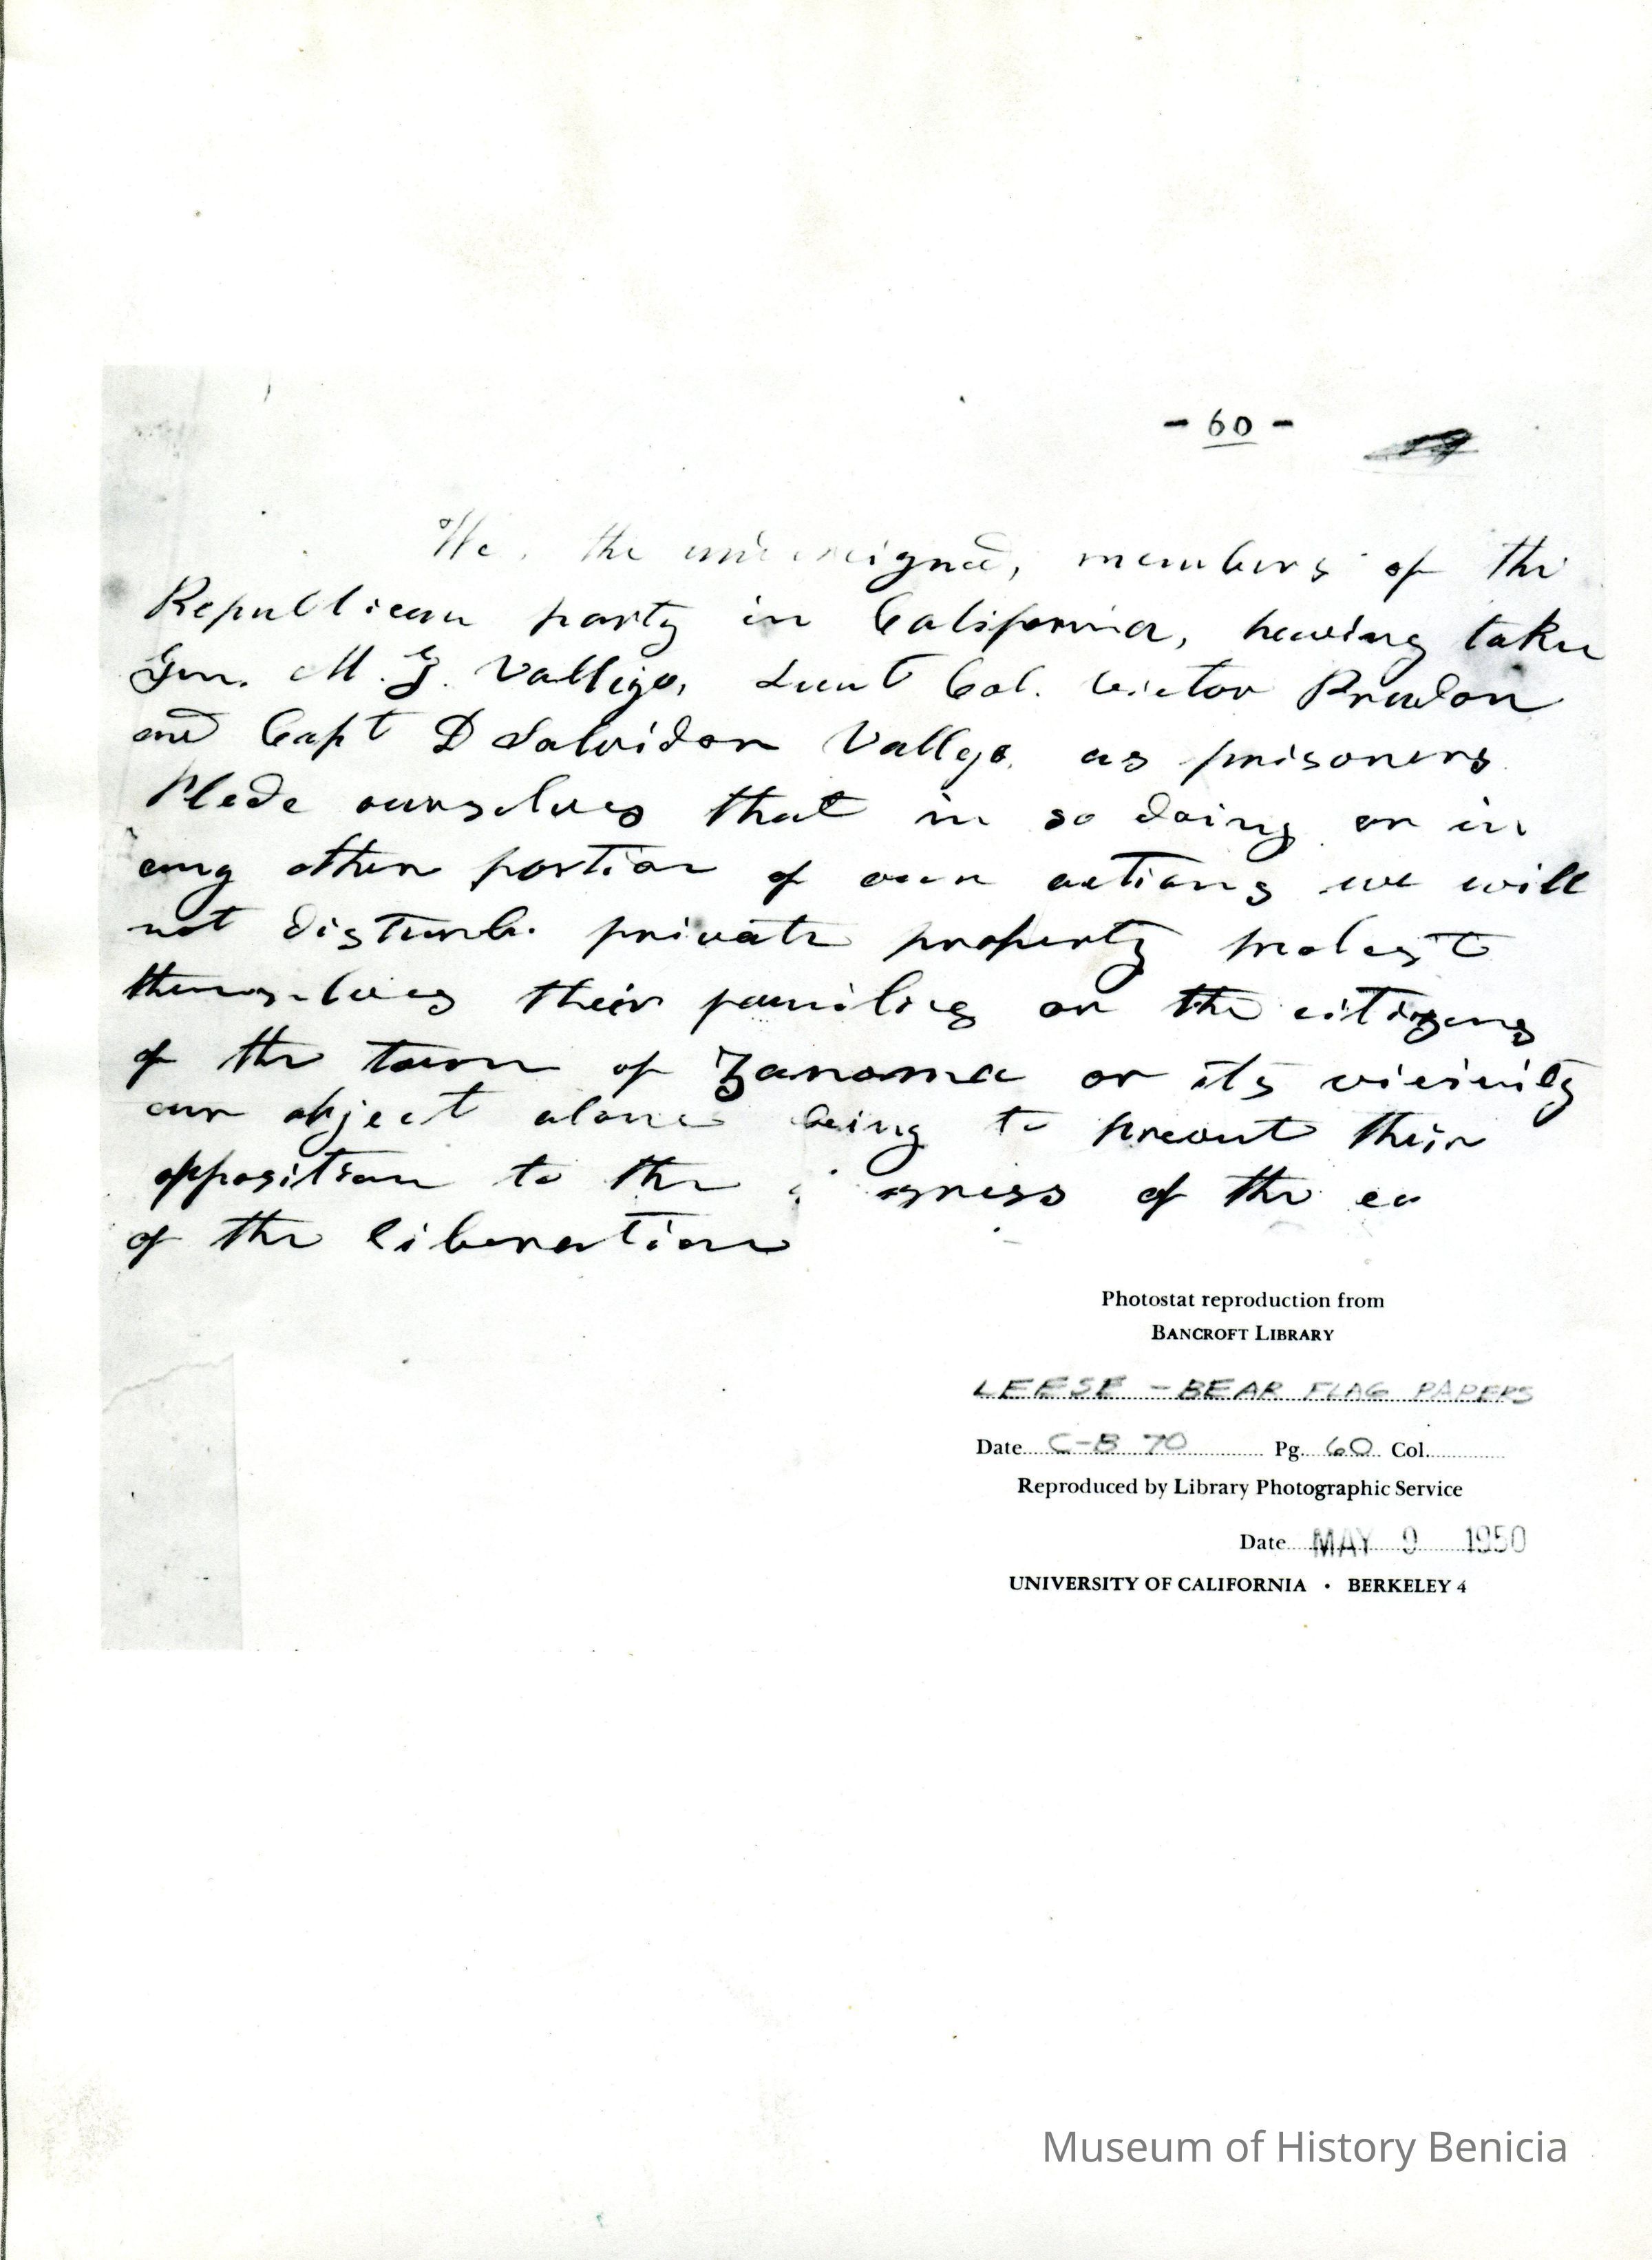 - 60 -
We, the undersigned, members of the
Republican party in California, having taken
Gen. M. G. Vallejo, Lieut Col. Victor Prudon
and Capt D Salvidor Vallejo, as prisoners
Plede ourselves that in so doing or in
any other portion of our actions we will
not disturb private property molest
themselves their families or the citizens
of the town of Zanoma or its vicinity
our object alone being to prevent their
opposition to the of the
of the liberation
Photostat reproduction from
BANCROFT LIBRARY
LEESE - BEAR FLAG PAPERS
Date C-B 70 Pg. 60 Col.
Reproduced by Library Photographic Service
Date MAY 9 1950
UNIVERSITY OF CALIFORNIA • BERKELEY 4
Museum of History Benicia